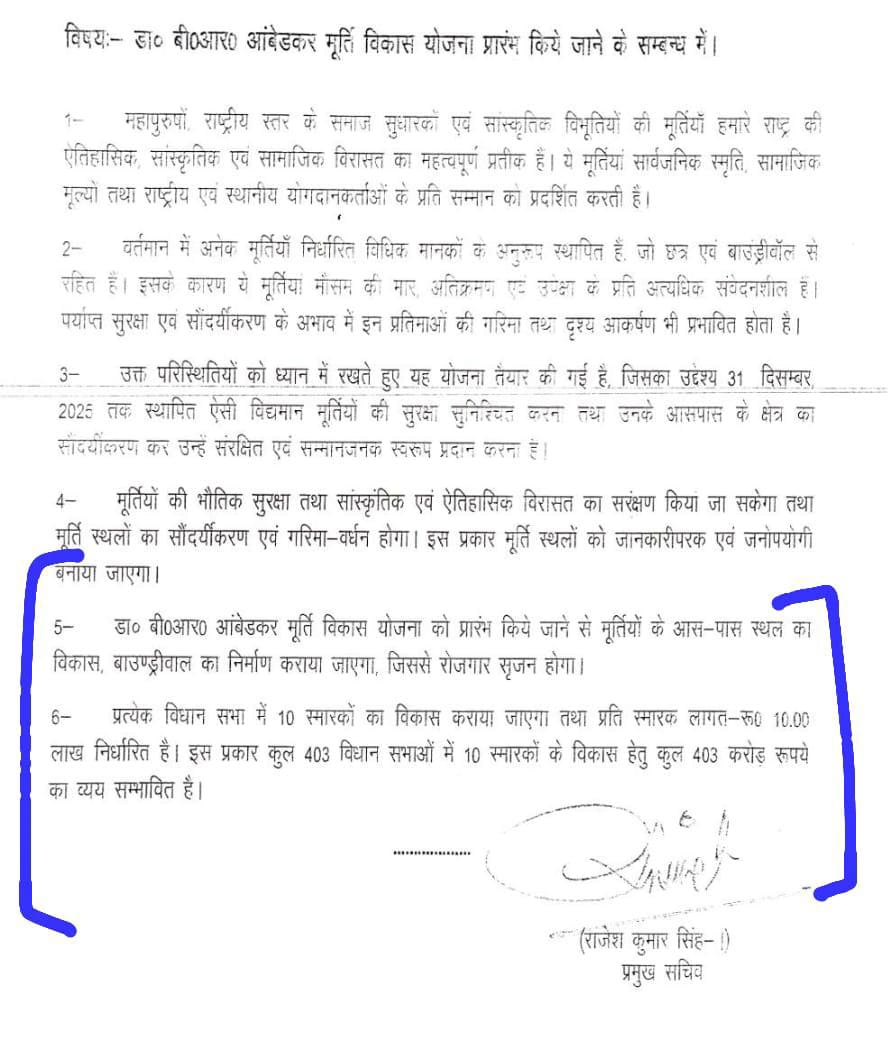 विषयः– डा० बी0आर0 आंबेडकर मूर्ति विकास योजना प्रारंभ किये जाने के सम्बन्ध में।
1– महापुरुषों, राष्ट्रीय स्तर के समाज सुधारकों एवं सांस्कृतिक विभूतियों की मूर्तियाँ हमारे राष्ट्र की
ऐतिहासिक, सांस्कृतिक एवं सामाजिक विरासत का महत्वपूर्ण प्रतीक हैं। ये मूर्तियां सार्वजनिक स्मृति, सामाजिक
मूल्यो तथा राष्ट्रीय एवं स्थानीय योगदानकर्ताओं के प्रति सम्मान को प्रदर्शित करती है।
2– वर्तमान में अनेक मूर्तियाँ निर्धारित विधिक मानकों के अनुरूप स्थापित हैं, जो छत्र एवं बाउंड्रीवॉल से
रहित हैं। इसके कारण ये मूर्तियां मौसम की मार, अतिक्रमण एवं उपेक्षा के प्रति अत्यधिक संवेदनशील हैं।
पर्याप्त सुरक्षा एवं सौंदर्यीकरण के अभाव में इन प्रतिमाओं की गरिमा तथा दृश्य आकर्षण भी प्रभावित होता है।
3– उक्त परिस्थितियों को ध्यान में रखते हुए यह योजना तैयार की गई है, जिसका उद्देश्य 31 दिसम्बर,
2025 तक स्थापित ऐसी विद्यमान मूर्तियों की सुरक्षा सुनिश्चित करना तथा उनके आसपास के क्षेत्र का
सौंदर्यीकरण कर उन्हें संरक्षित एवं सम्मानजनक स्वरूप प्रदान करना है।
4– मूर्तियों की भौतिक सुरक्षा तथा सांस्कृंतिक एवं ऐतिहासिक विरासत का सरंक्षण किया जा सकेगा तथा
मूर्ति स्थलों का सौंदर्यीकरण एवं गरिमा–वर्धन होगा। इस प्रकार मूर्ति स्थलों को जानकारीपरक एवं जनोपयोगी
बनाया जाएगा।
5– डा० बी0आर0 आंबेडकर मूर्ति विकास योजना को प्रारंभ किये जाने से मूर्तियों के आस–पास स्थल का
विकास, बाउण्ड्रीवाल का निर्माण कराया जाएगा, जिससे रोजगार सृजन होगा।
6– प्रत्येक विधान सभा में 10 स्मारकों का विकास कराया जाएगा तथा प्रति स्मारक लागत–रू0 10.00
लाख निर्धारित है। इस प्रकार कुल 403 विधान सभाओं में 10 स्मारकों के विकास हेतु कुल 403 करोड़ रूपये
का व्यय सम्भावित है।
(राजेश कुमार सिंह–।)
प्रमुख सचिव